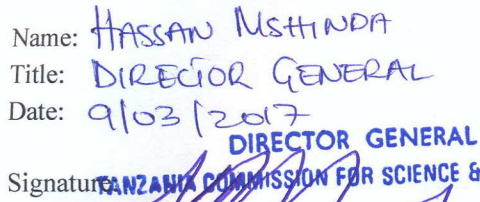 Name: HASSAN MSHINDA
Title: DIRECTOR GENERAL
Date: 9/03/2017
DIRECTOR GENERAL
Signature TANZANIA COMMISSION FOR SCIENCE &